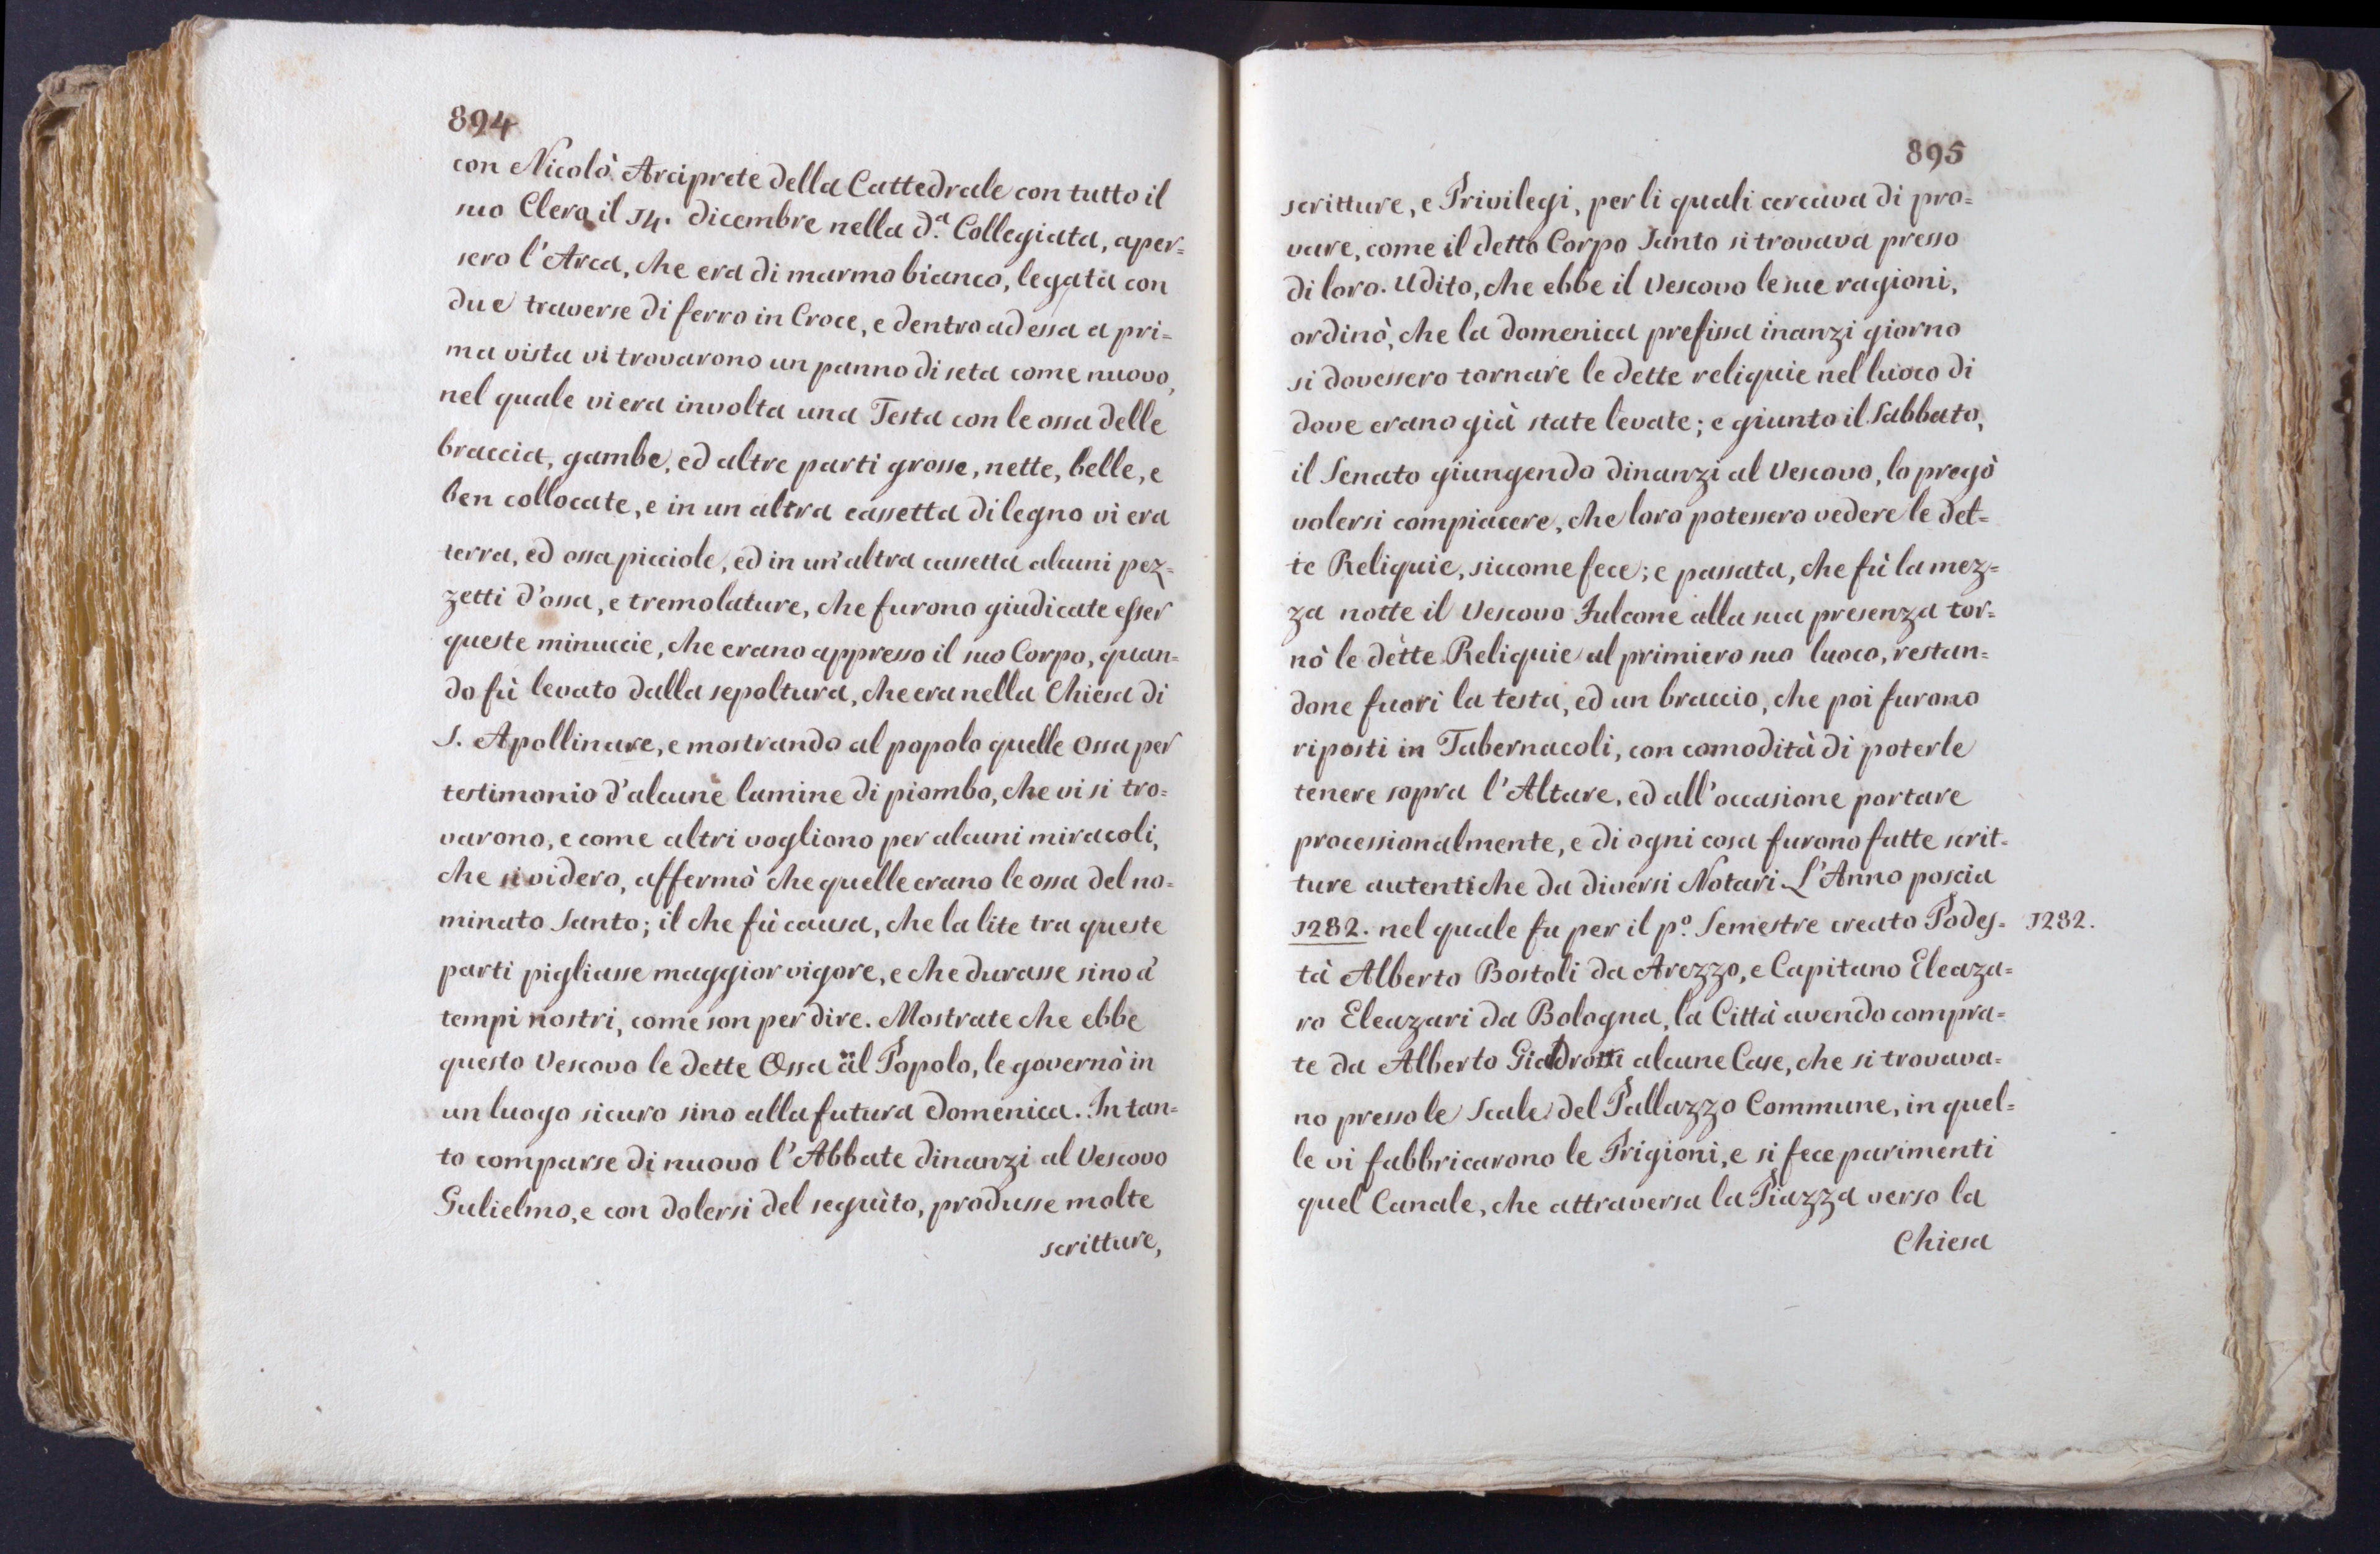 894
con Nicolò Arciprete della Cattedrale con tutto il
suo Clero il 14. dicembre nella d.ª Collegiata, aper=
sero l'Arca, che era di marmo bianco, legata con
due traverse di ferro in Croce, e dentro ad essa a pri=
ma vista vi trovarono un panno di seta come nuovo,
nel quale vi era involta una Testa con le ossa delle
braccia, gambe, ed altre parti grosse, nette, belle, e
ben collocate, e in un altra cassetta di legno vi era
terra, ed ossa picciole, ed in un'altra cassetta alcuni pez=
zetti d'ossa, e tremolature, che furono giudicate esser
queste minuccie, che erano appresso il suo Corpo, quan=
do fù levato dalla sepoltura, che era nella Chiesa di
S. Apollinare, e mostrando al popolo quelle Ossa per
testimonio d'alcune lamine di piombo, che vi si tro=
varono, e come altri vogliono per alcuni miracoli,
che si videro, affermò che quelle erano le ossa del no=
minato Santo; il che fù causa, che la lite tra queste
parti pigliasse maggior vigore, e che durasse sino a'
tempi nostri, come son per dire. Mostrate che ebbe
questo Vescovo le dette Ossa al Popolo, le governò in
un luogo sicuro sino alla futura Domenica. In tan=
to comparse di nuovo l'Abbate dinanzi al Vescovo
Gulielmo, e con dolersi del seguito, produsse molte
scritture,
895
scritture, e Privilegi, per li quali cercava di pro=
vare, come il detto Corpo Santo si trovava presso
di loro. Udito, che ebbe il Vescovo le sue ragioni,
ordinò, che la domenica prefissa inanzi giorno
si dovessero tornare le dette reliquie nel luoco di
dove erano già state levate; e giunto il Sabbato,
il Senato giungendo dinanzi al Vescovo, lo pregò
volersi compiacere, che loro potessero vedere le det=
te Reliquie, siccome fece; e passata, che fù la mez=
za notte il Vescovo Fulcone alla sua presenza tor=
nò le dette Reliquie al primiero suo luoco, restan=
done fuori la testa, ed un braccio, che poi furono
riposti in Tabernacoli, con comodità di poterle
tenere sopra l'Altare, ed all'occasione portare
processionalmente, e di ogni cosa furono fatte scrit=
ture autentiche da diversi Notari. L'Anno poscia
1282. nel quale fu per il p.º Semestre creato Podes= 1282.
tà Alberto Bostoli da Arezzo, e Capitano Eleaza=
ro Eleazari da Bologna, la Città avendo compra=
te da Alberto alcune Case, che si trovava=
no presso le Scale del Pallazzo Commune, in quel=
le vi fabbricarono le Prigioni, e si fece parimenti
quel Canale, che attraversa la Piazza verso la
Chiesa